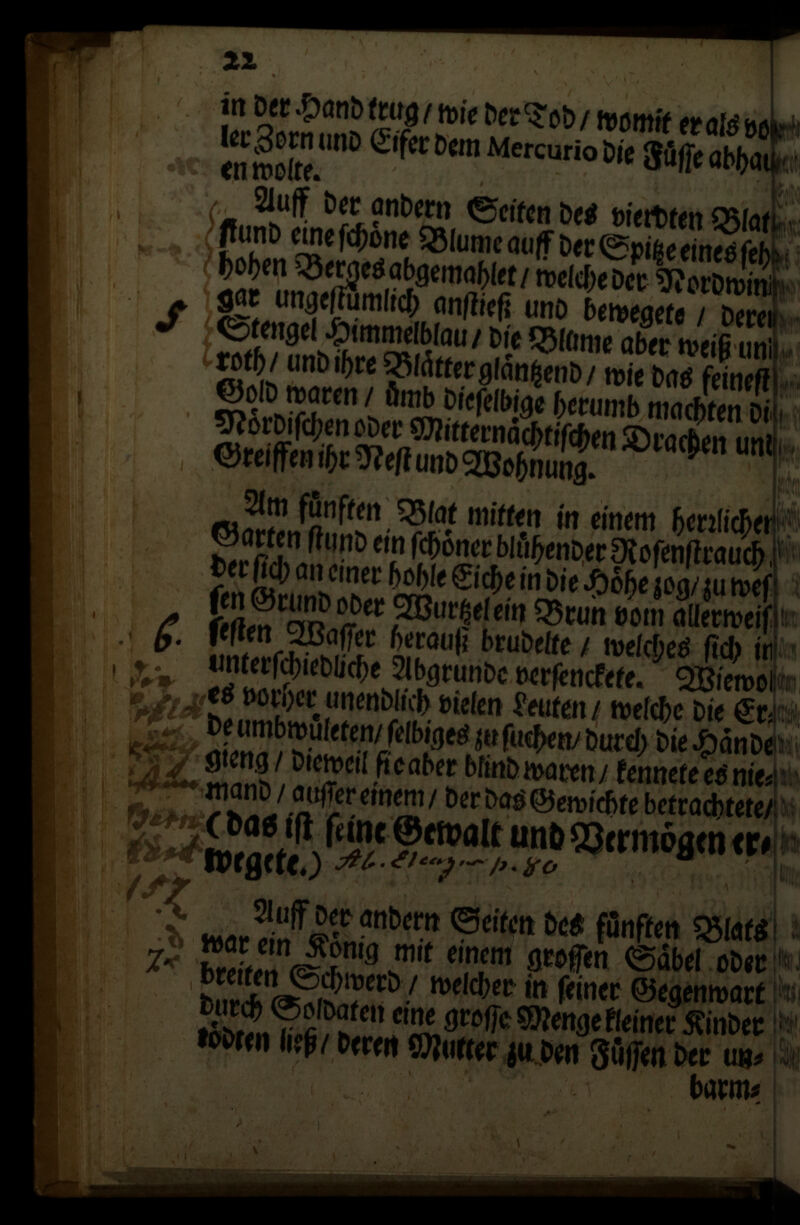 22
in der Hand trug / wie der Tod / womit er als vol-
ler Zorn und Eifer dem Mercurio die Füsse abhau-
en wolte.
Auff der andern Seiten des vierdten Blat
stund eine schöne Blume auff der Spitze eines seh
hohen Berges abgemahlet / welche der Nordwin
5 gar ungestümlich anstieß und bewegete / deren
Stengel Himmelblau / die Blume aber weiß un
roth / und ihre Blätter gläntzend / wie das feinest
Gold waren / ümb dieselbige herumb machten di
Nördischen oder Mitternächtischen Drachen und
Greiffen ihr Nest und Wohnung.
Am fünften Blat mitten in einem herrlichen
Garten stund ein schöner blühender Rosenstrauch
der sich an einer hohle Eiche in die Höhe zog / zu wes
sen Grund oder Wurtzel ein Brun vom allerweis
6. sesten Wasser herauß brudelte / welches sich in
unterschiedliche Abgrunde versenckete. Wiewol
es vorher unendlich vielen Leuten / welche die Er-
de umbwületen / selbiges zu suchen / durch die Hände
gieng / dieweil sie aber blind waren / kennete es nie-
mand / ausser einem / der das Gewichte betrachtete /
(das ist seine Gewalt und Vermögen er-
wegete.) p. 80
152
Auff der andern Seiten des fünften Blats
7. war ein König mit einem grossen Säbel oder
breiten Schwerd / welcher in seiner Gegenwart
durch Soldaten eine grosse Menge kleiner Kinder
tödten ließ / deren Mutter zu den Füssen der un-
barm-